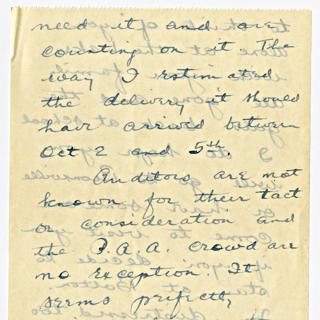 need it and are
counting on it. The
way I estimated
the delivery it should
have arrived between
Oct 2 and 5th.
Auditors are not
known for their tact
or consideration and
the P.A.A. crowd are
no exception. It
seems perfectly